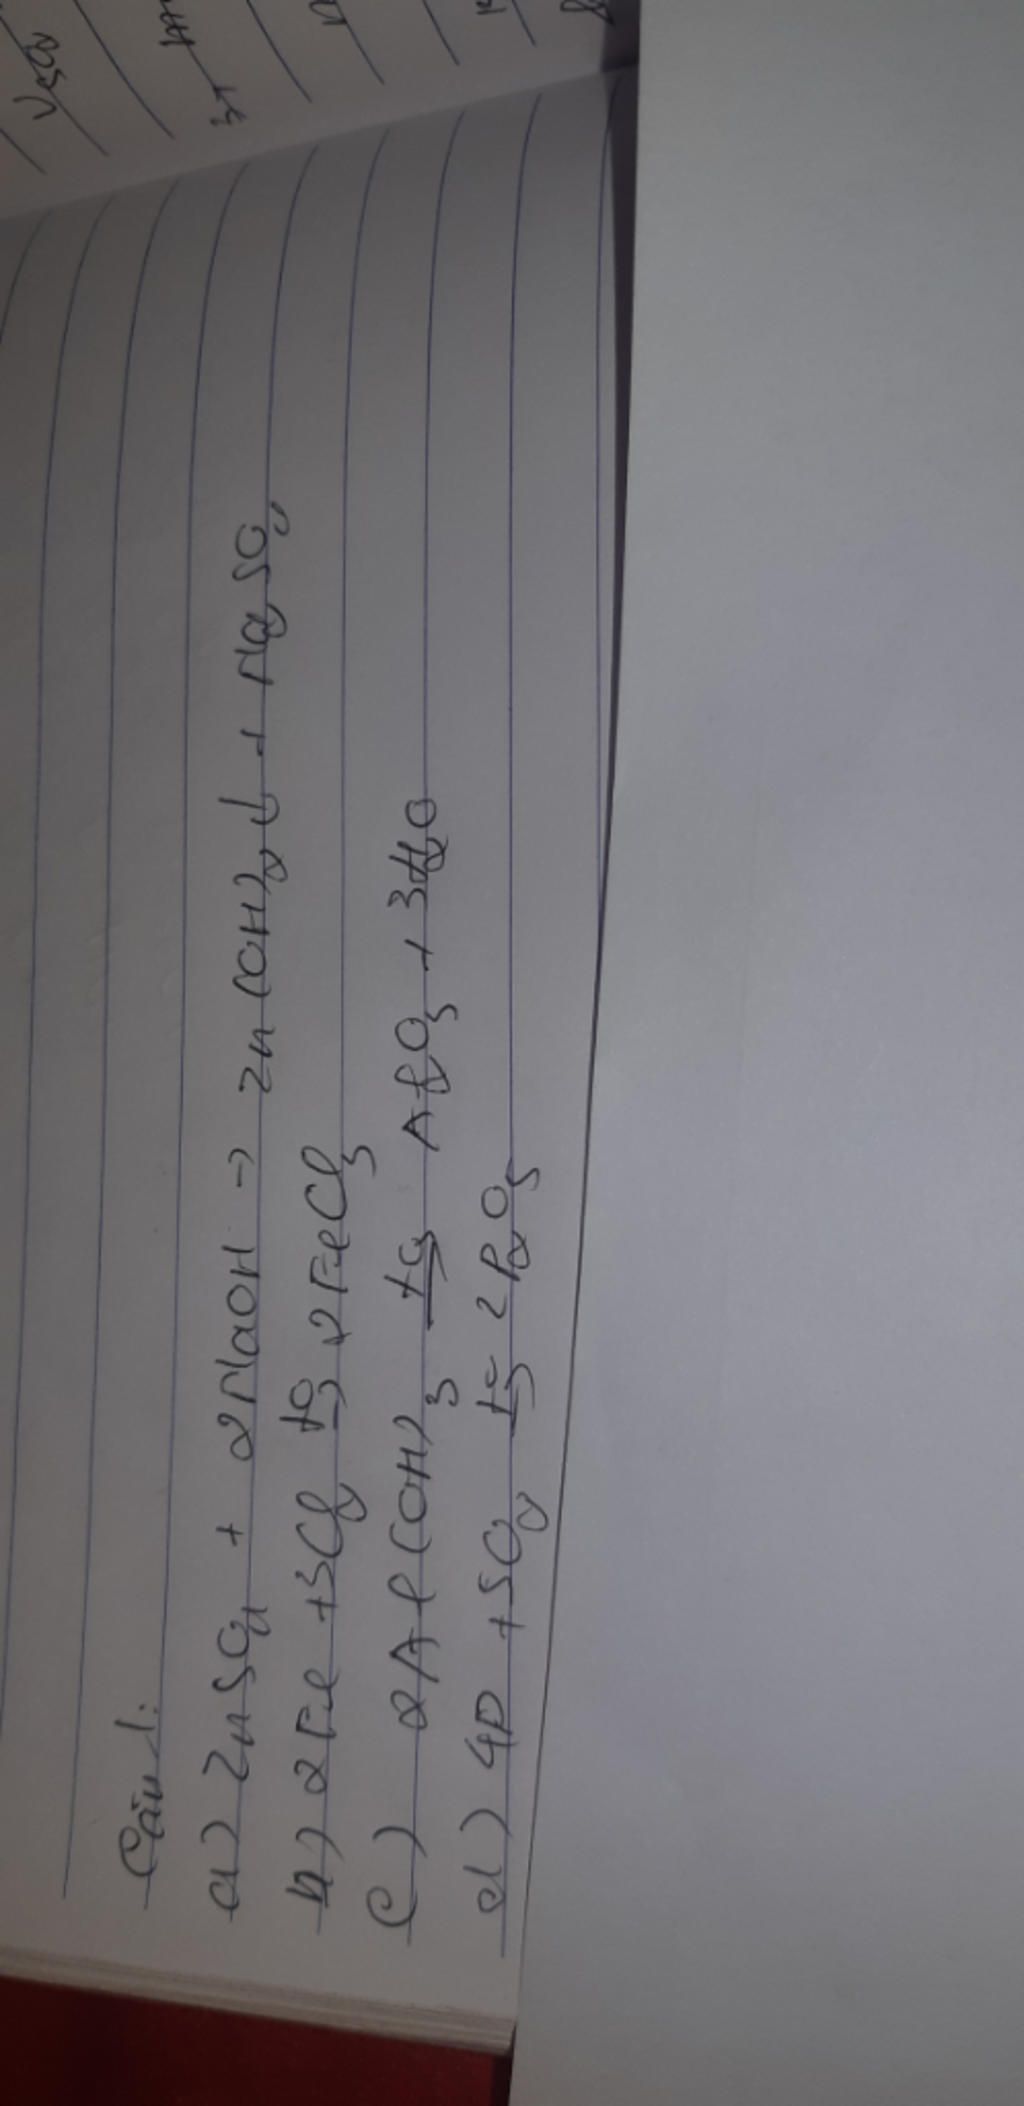 Câu 1:
a) ZnSO4 + 2NaOH → Zn(OH)2 ↓ + Na2SO4
b) 2Fe + 3Cl2 t°→ 2FeCl3
c) 2Al(OH)3 t°→ Al2O3 + 3H2O
d) 4P + 5O2 t°→ 2P2O5